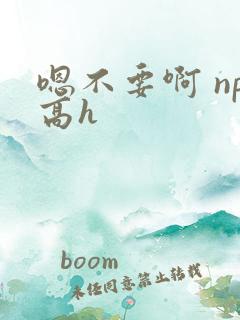 嗯不要啊 np
高h
boom
未经同意禁止转载